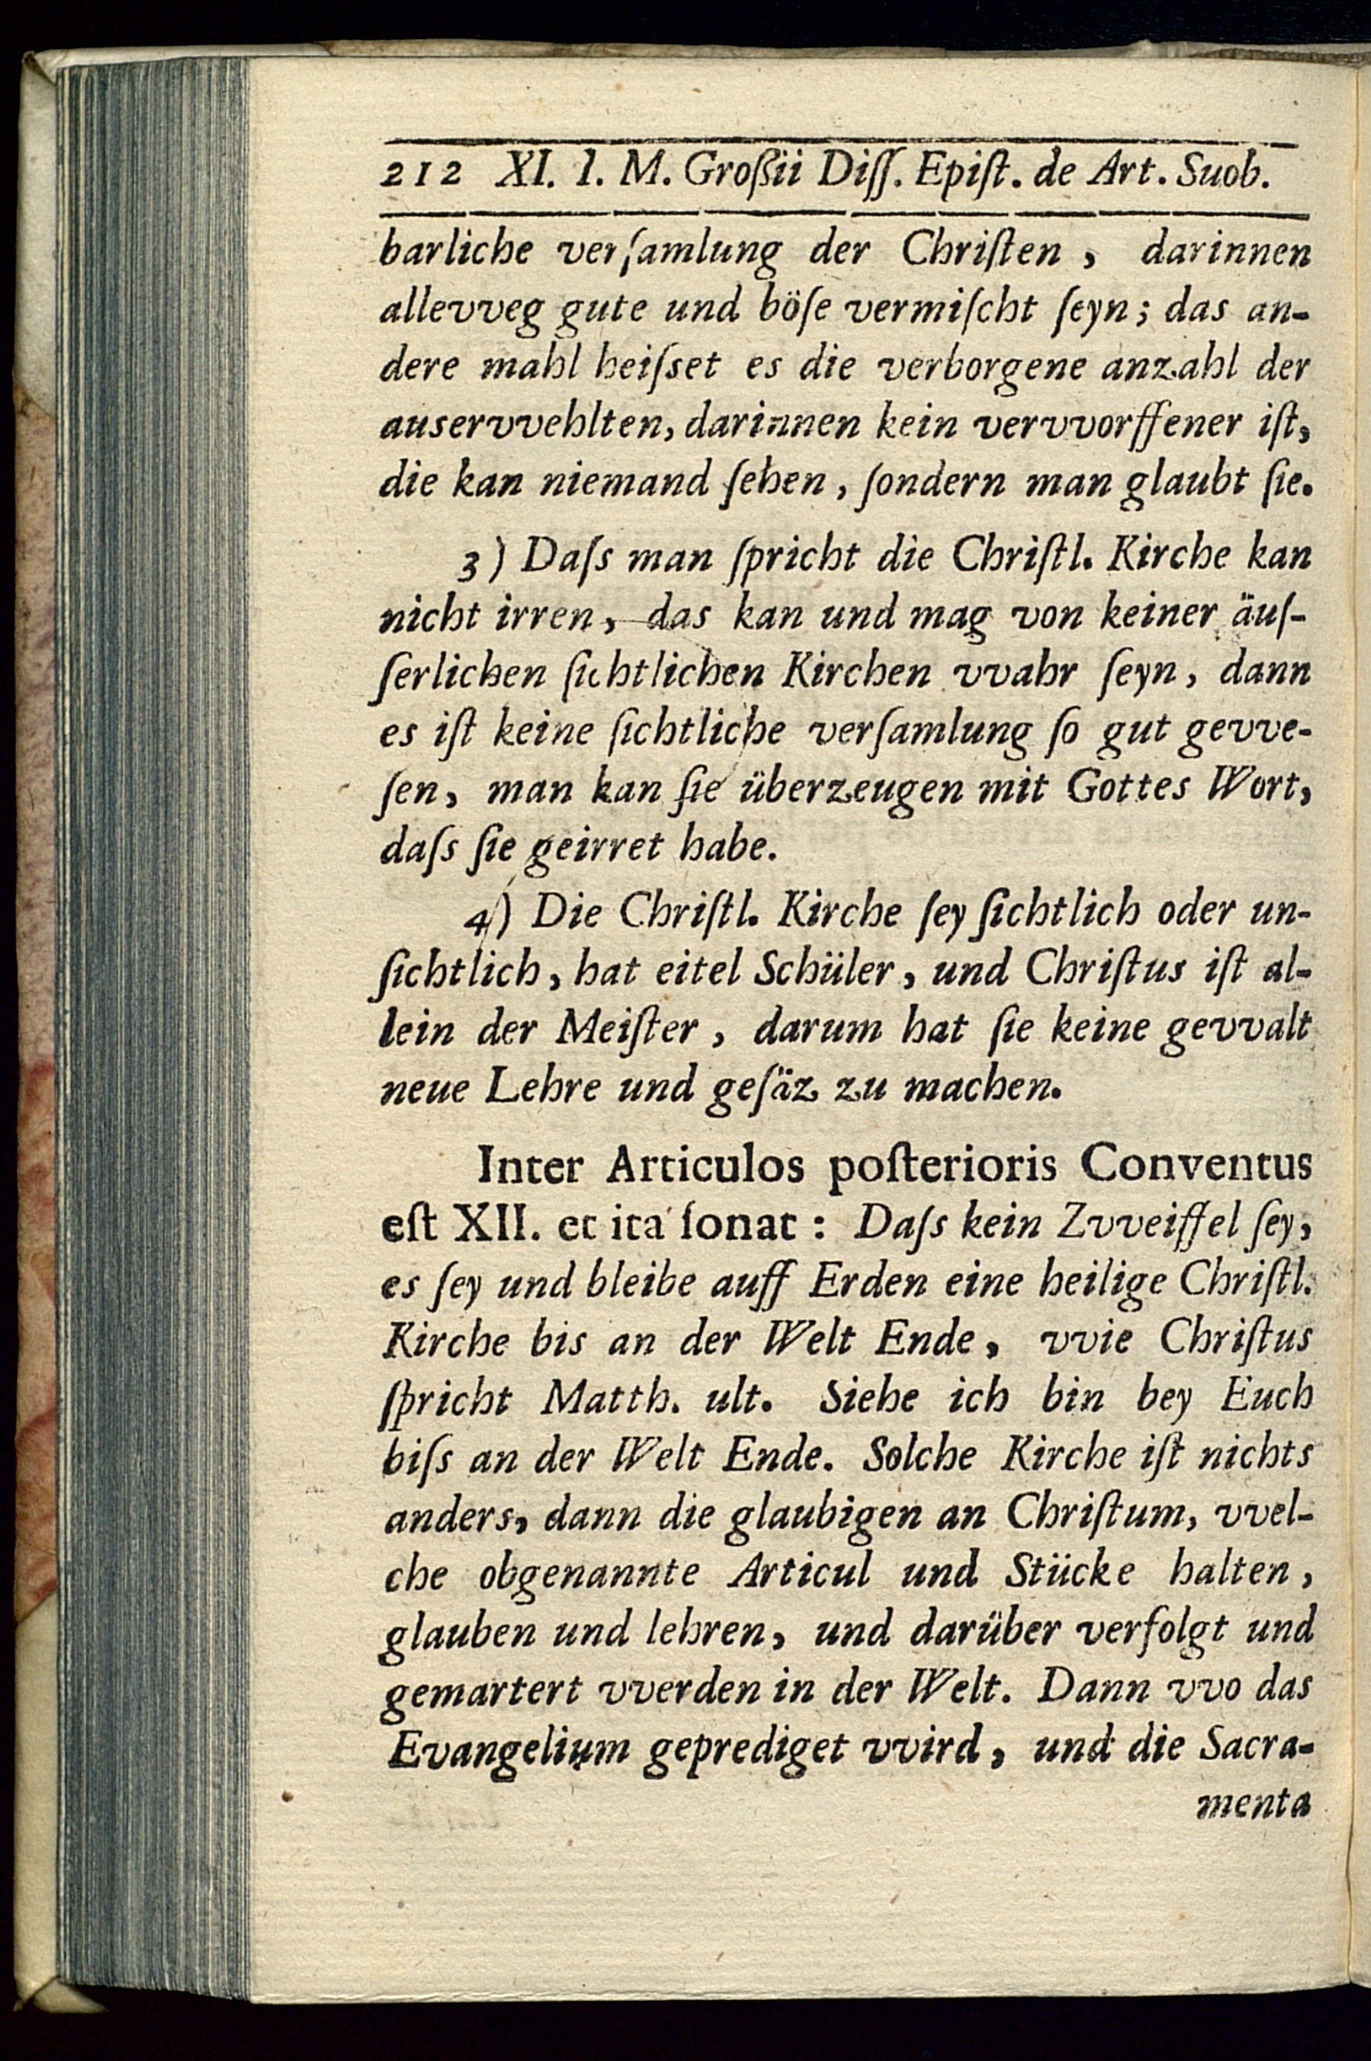 212 XI. I. M. Großii Diſſ. Epiſt. de Art. Suob.
barliche verſamlung der Chriſten, darinnen
allevveg gute und böſe vermiſcht ſeyn; das an-
dere mahl heiſset es die verborgene anzahl der
auservvehlten, darinnen kein vervvorffener iſt,
die kan niemand ſehen, ſondern man glaubt ſie.
3) Daſs man ſpricht die Chriſtl. Kirche kan
nicht irren, das kan und mag von keiner äuſ-
ſerlichen ſichtlichen Kirchen vvahr ſeyn, dann
es iſt keine ſichtliche verſamlung ſo gut gevve-
ſen, man kan ſie überzeugen mit Gottes Wort,
daſs ſie geirret habe.
4) Die Chriſtl. Kirche ſey ſichtlich oder un-
ſichtlich, hat eitel Schüler, und Chriſtus iſt al-
lein der Meiſter, darum hat ſie keine gevvalt
neue Lehre und geſäz zu machen.
Inter Articulos poſterioris Conventus
eſt XII. et ita ſonat: Daſs kein Zvveiffel ſey,
es ſey und bleibe auff Erden eine heilige Chriſtl.
Kirche bis an der Welt Ende, vvie Chriſtus
ſpricht Matth. ult. Siehe ich bin bey Euch
biſs an der Welt Ende. Solche Kirche iſt nichts
anders, dann die glaubigen an Chriſtum, vvel-
che obgenannte Articul und Stücke halten,
glauben und lehren, und darüber verfolgt und
gemartert vverden in der Welt. Dann vvo das
Evangelium geprediget vvird, und die Sacra-
menta